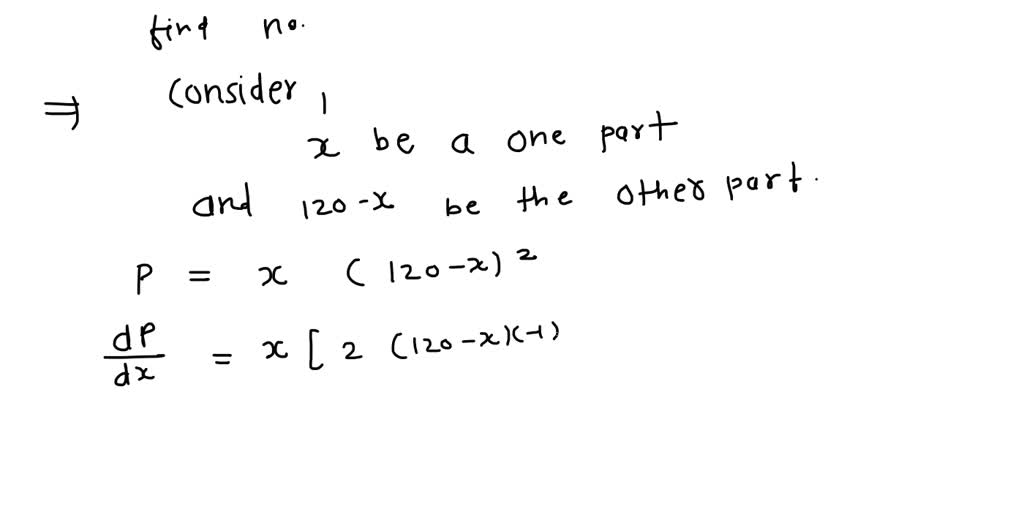 find no.
⇒ Consider,
x be a one part
and 120-x be the other part.
P = x (120-x)²
dP/dx = x [ 2 (120-x)(-1)